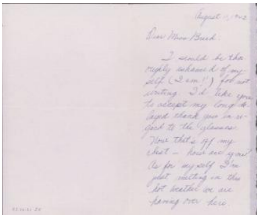 August 11, 1942
Dear Miss Breed:
I should be tho-
roughly ashamed of my-
self (I am!) for not
writing. I'd like you
to accept my long de-
layed thank you in re-
gard to the glasses.
Now that's off my
chest — how are you?
As for myself I'm
just melting in this
hot weather we are
having over here